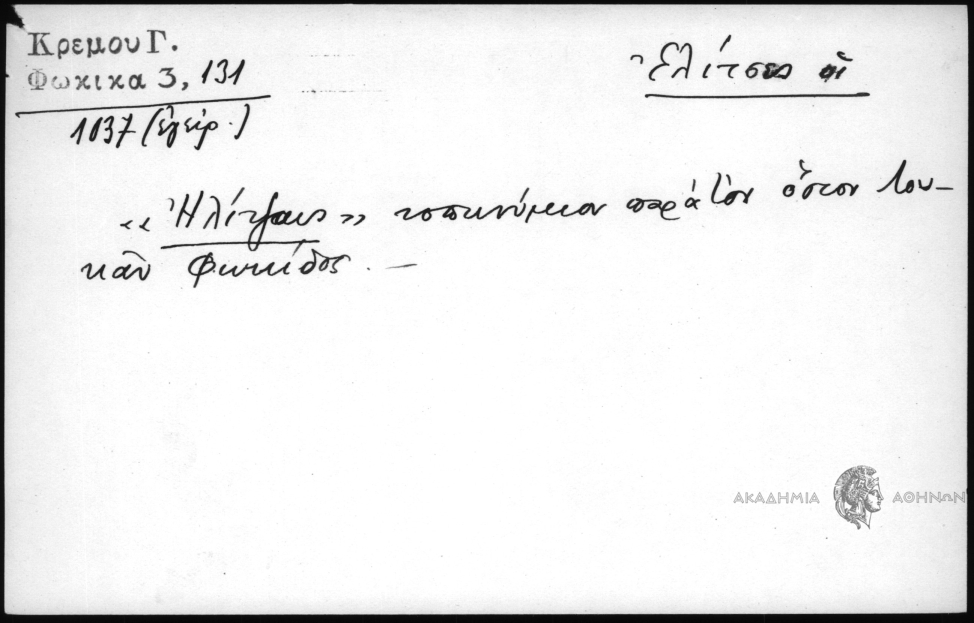 Κρεμου Γ.
Φωκικα 3, 131
1037 (ἐγειρ.)
Ἐλίτσες οἱ
«Ἠλίτζαις» τοπωνύμιον παρὰ τὸν ὅσιον Λου-
κᾶν Φωκίδος. —
ΑΚΑΔΗΜΙΑ ΑΘΗΝΩΝ